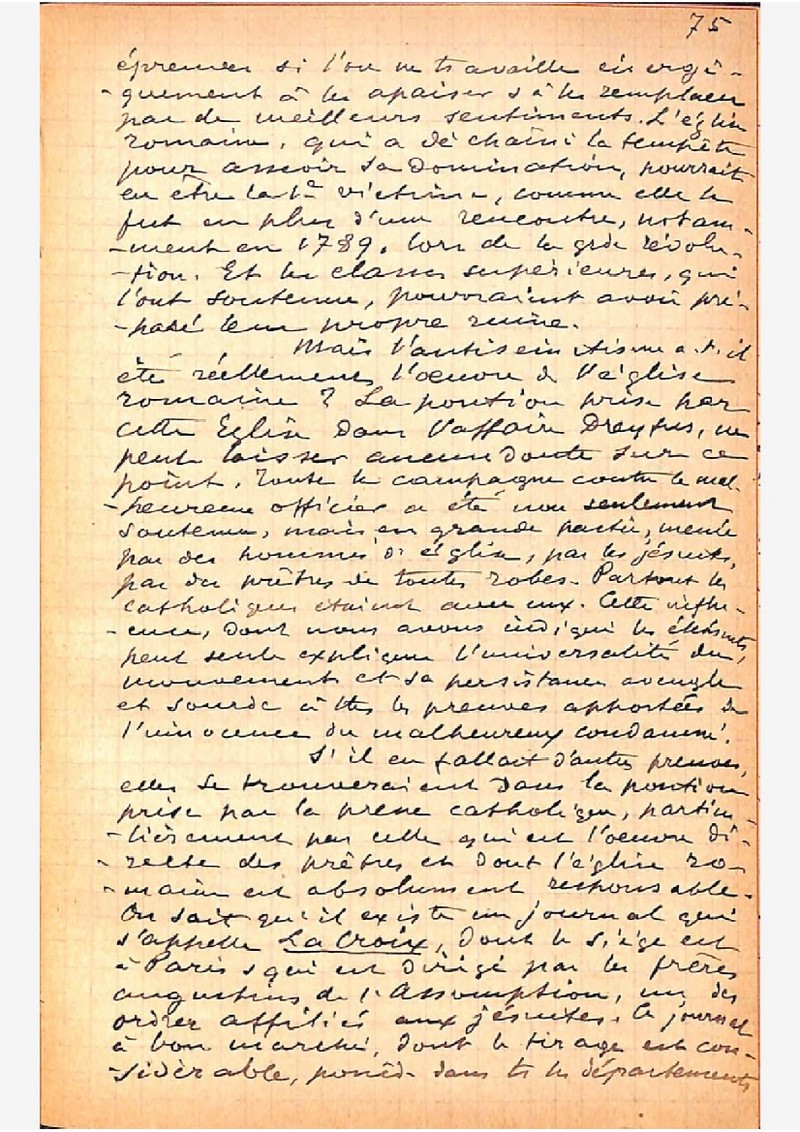 75
épreuves si l'on ne travaille énergi-
-quement à les apaiser & à les remplacer
par de meilleurs sentiments. L'église
romaine, qui a déchaîné la tempête
pour asseoir sa domination, pourrait
en être la 1e victime, comme elle le
fut en plus d'une rencontre, notam-
-ment en 1789, lors de la grde révolu-
-tion. Et les classes supérieures, qui
l'ont soutenue, pourraient avoir pré-
-paré leur propre ruine.
Mais l'antisémitisme a-t-il
été réellement l'œuvre de l'église
romaine ? La position prise par
cette Eglise dans l'affaire Dreyfus, ne
peut laisser aucun doute sur ce
point. Toute la campagne contre le mal-
-heureux officier a été non seulement
soutenue, mais en grande partie, menée
par des hommes d'église, par les jésuites,
par des prêtres de toutes robes. Partout les
catholiques étaient avec eux. Cette influ-
-ence, dont nous avons indiqué les éléments,
peut seule expliquer l'universalité du
mouvement et sa persistance aveugle
et sourde à ttes les preuves apportées de
l'innocence du malheureux condamné.
S'il en fallait d'autres preuves,
elles se trouveraient dans la position
prise par la presse catholique, particu-
-lièrement par celle qui est l'œuvre di-
-recte des prêtres et dont l'église ro-
-maine est absolument responsable.
On sait qu'il existe un journal qui
s'appelle La Croix, dont le siège est
à Paris & qui est dirigé par les frères
augustins de l'Assomption, un des
ordres affiliés aux jésuites. Ce journal
à bon marché, dont le tirage est con-
-sidérable, possède dans ts les départements